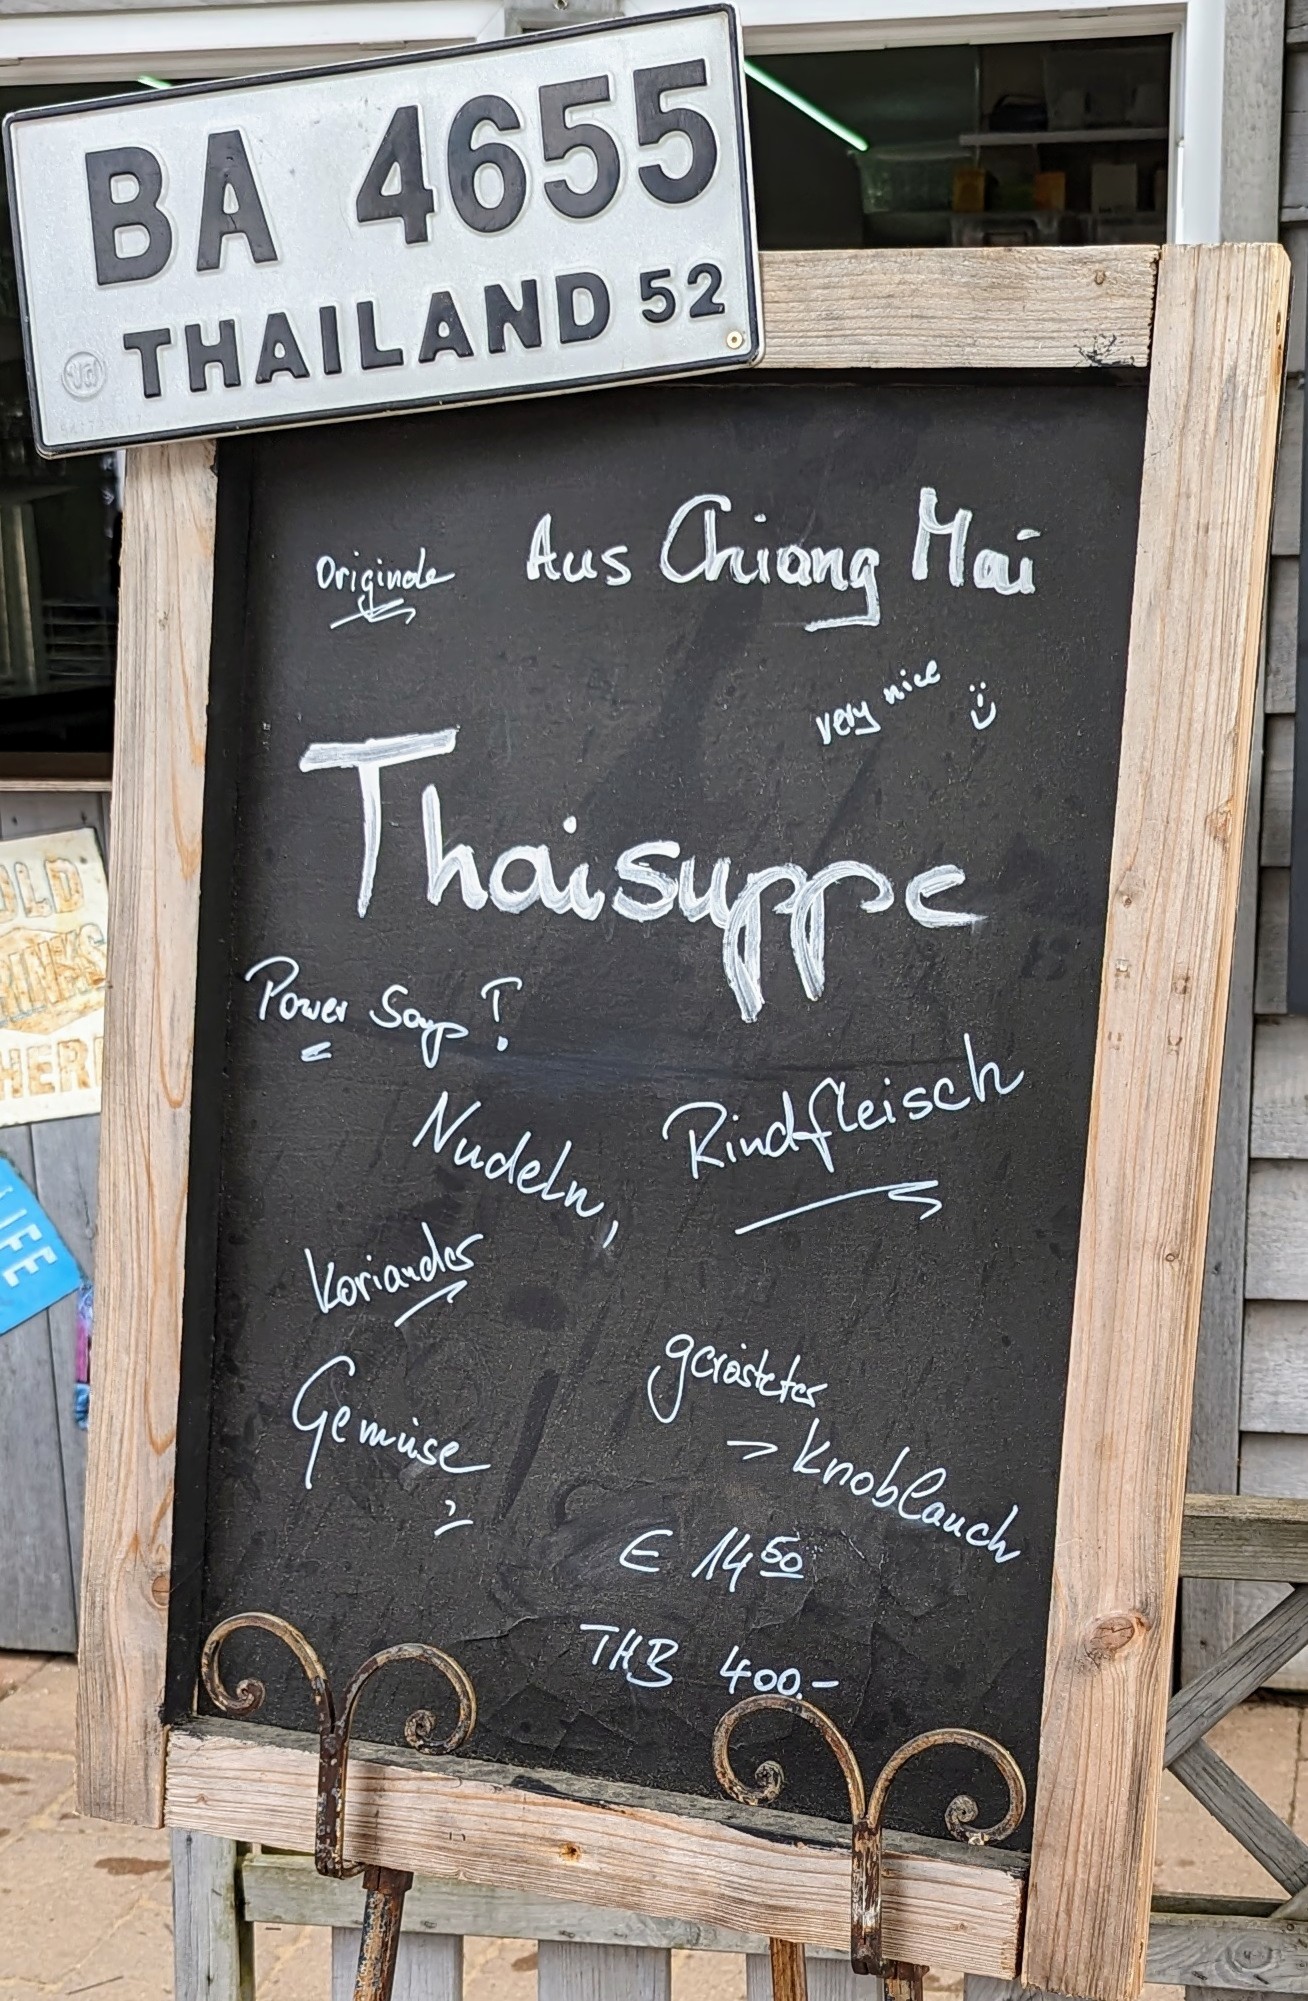 BA 4655
THAILAND 52
Originale
Aus Chiang Mai
very nice
Thaisuppe
Power Soup!
Nudeln,
Rindfleisch
Koriander
gerösteter
Gemüse
Knoblauch
€ 14 50
THB 400.-
OLD
HERE
LIFE